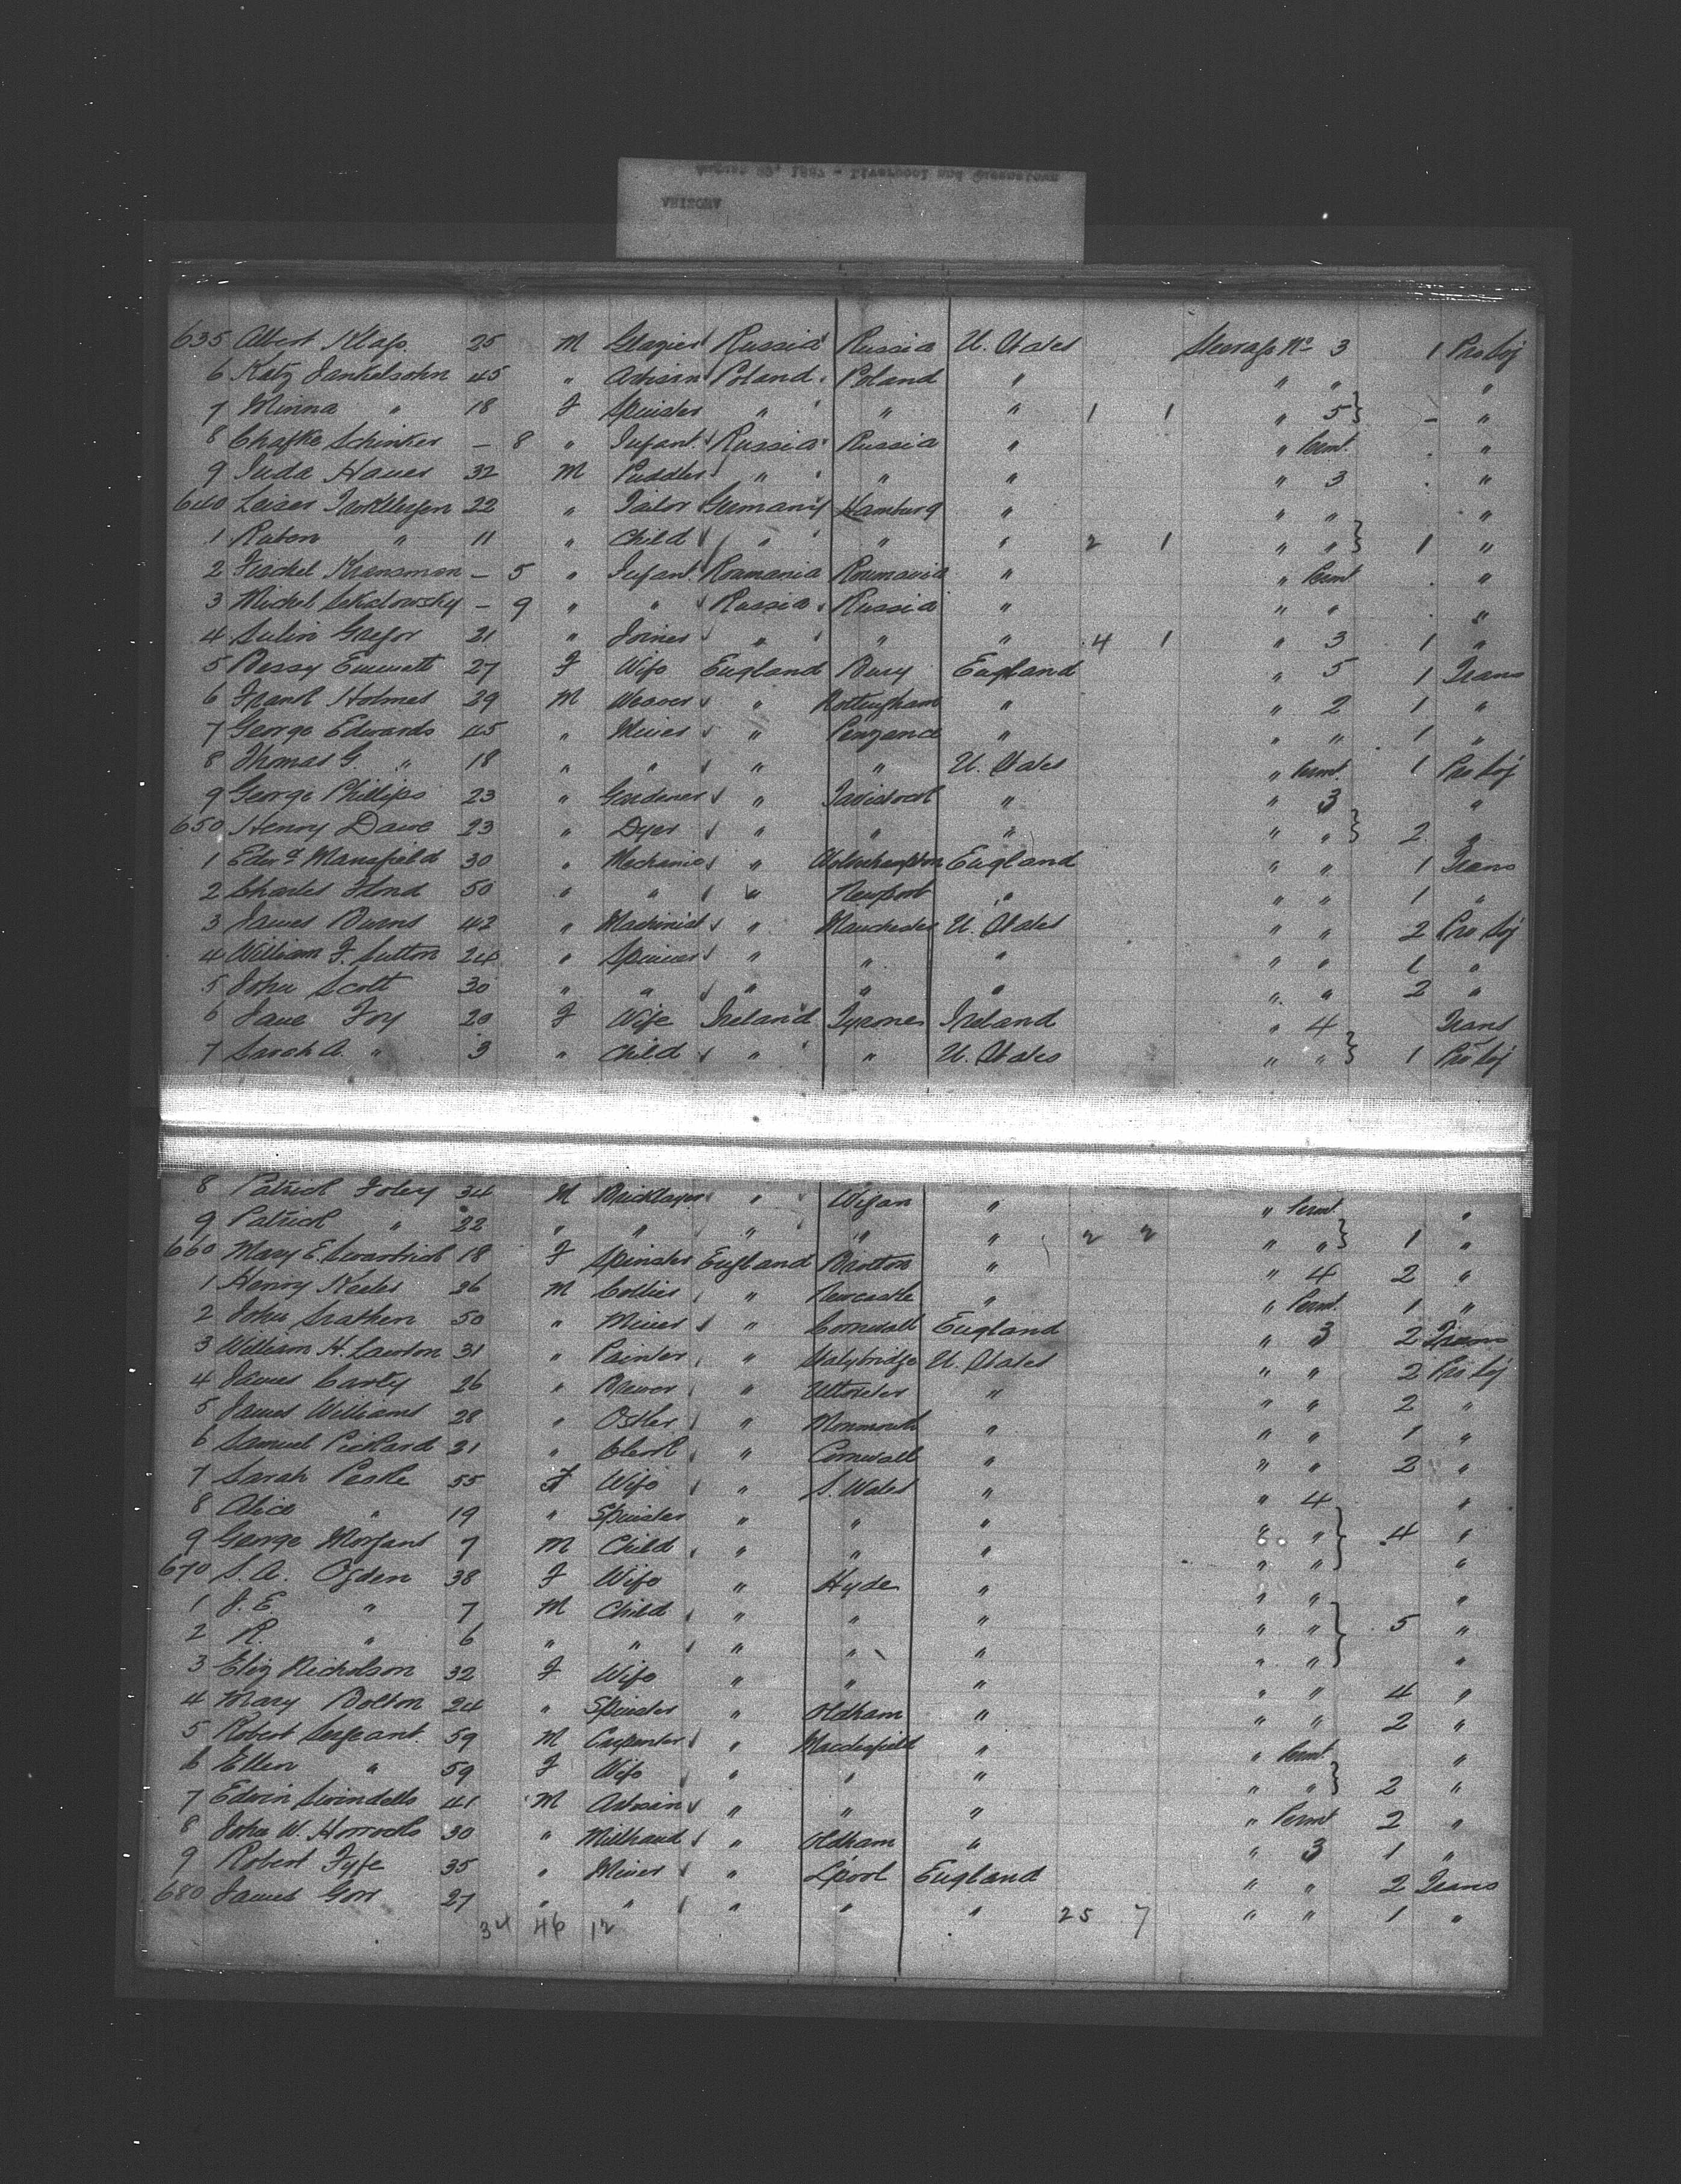 ARIZONA
August 29, 1887 - Liverpool and Queenstown
635 Albert Klass 25 M Glazier Russia Russia U. States Steerage No 3 1 Pro Soj
6 Katz Jankelsohn 45 " Artisan Poland Poland " " " "
7 Minna " 18 F Spinster " " " 1 1 " 5 } - "
8 Chafke Schinker - 8 " Infant Russia Russia " " Permt "
9 Juda Hauer 32 M Puddler " " " " 3 "
640 Leiser 22 " Tailor Germany Hamburg " " " "
1 Ruben " 11 " Child " " " 2 1 " " } 1 "
2 Fischel Kransman - 5 " Infant Roumania Roumania " " Permt "
3 Michel Sekalowsky - 9 " " Russia Russia " " " "
4 Gregor 21 " Joiner " " " 4 1 " 3 1 "
5 Bessy Emmett 27 F Wife England Bury England " 5 1 Trans
6 Frank Holmes 29 M Weaver " Nottingham " " 2 1 "
7 George Edwards 45 " Miner " Penzance " " " 1 "
8 Thomas G. " 18 " " " " U. States " Permt 1 Pro Soj
9 George Phillips 23 " Gardener " Tavistock " " 3 "
650 Henry Dawe 23 " Dyer " " " " " } 2 "
1 Edwd Mansfield 30 " Mechanic " Wolverhampton England " " 1 Trans
2 Charles Flond 50 " " " Newport " " " 1 "
3 James Burns 42 " Machinist " Manchester U. States " " 2 Pro Soj
4 William F. Sutton 24 " Spinner " " " " " 1 "
5 John Scott 30 " " " " " " " 2 "
6 Jane Foy 20 F Wife Ireland Tyrone Ireland " 4 Trans
7 Sarah A. " 3 " Child " " U. States " " } 1 Pro Soj
8 Patrick Foley 34 M Bricklayer " Wigan " " Permt "
9 Patrick " 22 " " " " " 2 2 " " } 1 "
660 Mary E. Swarbrick 18 F Spinster England " " 4 2 "
1 Henry Keates 26 M Collier " Newcastle " " Permt 1 "
2 John Srathen 50 " Miner " Cornwall England " 3 2 Trans
3 William H. Lawton 31 " Painter " Stalybridge U. States " " 2 Pro Soj
4 James Carty 26 " Brewer " Uttoxeter " " " 2 "
5 James Williams 28 " Ostler " Monmouth " " " 1 "
6 Samuel Pickard 21 " Clerk " Cornwall " " " 2 "
7 Sarah Peake 55 F Wife " S. Wales " " 4 "
8 Alice " 19 " Spinster " " " " " } 4 "
9 George Morgans 7 M Child " " " " " "
670 S. A. Ogden 38 F Wife " Hyde " " " "
1 J. E. " 7 M Child " " " " " } 5 "
2 R. " 6 " " " " " " " "
3 Eliz Nicholson 32 F Wife " " " " " 4 "
4 Mary Bolton 24 " Spinster " Oldham " " " 2 "
5 Robert Sergeant 59 M Carpenter " Macclesfield " " Permt "
6 Ellen " 59 F Wife " " " " " } 2 "
7 Edwin Swindells 41 M Artisan " " " " Permt 2 "
8 John W. Horrocks 30 " Millhand " Oldham " " 3 1 "
9 Robert Fyfe 35 " Miner " Lpool England " " 2 Trans
680 James Gorr 27 " " " " " " " 1 "
34 46 12 25 7